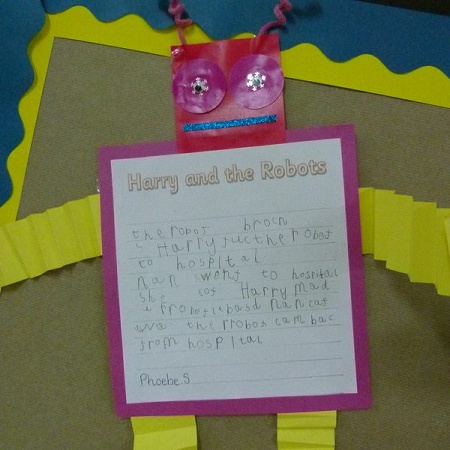 Harry and the Robots
the robot brocn
Harry the robot
to hospital
nan went to hospital
she Harry mad
a nan
the robot cam bac
from hospital
Phoebe.S